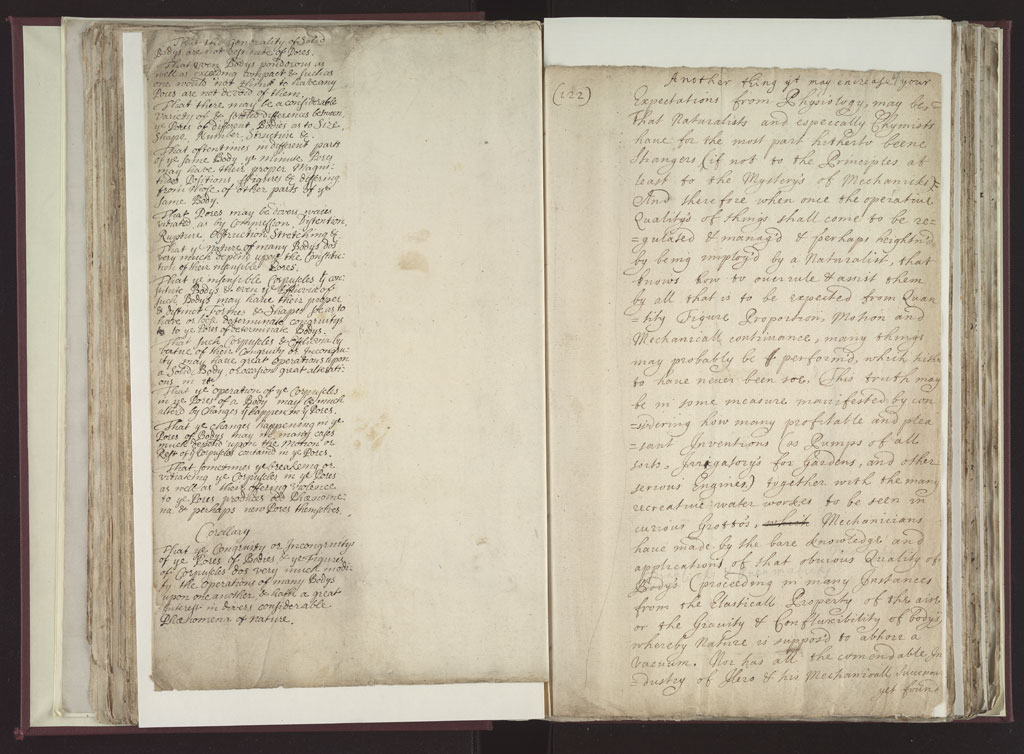 That the generality of Solid
Bodys are not destitute of Pores.
That even Bodys ponderous as
well as exceeding compact & such as
one would not think to have any
Pores are not devoid of them.
That there may be a considerable
variety of & settled differences between
ye Pores of different Bodies as to Size,
Shape, Number, Structure &c.
That oftentimes in different parts
of ye same Body ye minute Pores
may have their proper Magni-
tudes Positions, Figures & differing
from those of other parts of ye
same Body.
That Pores may be divers waies
vitiated as by Compression, Distension,
Rupture Obstruction, Stretching &c
That ye Nature of many Bodys dos
very much depend upon the Constitu-
tion of their insensible Pores.
That ye insensible Corpuscles yt con-
stitute Bodys & even ye Effluvia of
such Bodys may have their proper
& distinct & Shapes so as to
have or lack determinate congruitys
to ye Pores of determinate Bodys.
That such Corpuscles & Effluvia by
vertue of their Congruity or Incongru-
ity may have great operations upon
a Solid Body, or occasion great alterati-
ons in it.
That ye operation of ye Corpuscles
in ye Pores of a Body may be much
alterd by Changes yt happen in ye Pores.
That ye changes happening in ye
Pores of Bodys may in many cases
much depend upon the Motion or
Rest of ye Corpuscles contained in ye Pores.
That sometimes ye breaking or
vitiating ye Corpuscles in ye Pores
as well as their offering violence
to ye Pores, produces odd Phænome-
na & perhaps new Pores themselves.
Corollary
That ye Congruity or Incongruitys
of ye Pores of Bodies & ye Figures
of Corpuscles dos very much modi-
fy the Operations of many Bodys
upon one another, & hath a great
Interest in divers considerable
Phænomena of Nature.
(122)
Another thing yt may encrease your
Expectations from Physiology, may be=
That Naturalists and especially Chymists
have for the most part hitherto beene
strangers (if not to the Principles at
least to the Mystery's of Mechanicks)=
And therefore when once the operative
Quality's of things shall come to be re-
=gulated & manag'd & perhaps heightn'd
by being employ'd by a Naturalist, that
knows how to overrule & assist them
by all that is to be expected from Quan
=tity Figure Proportion, Motion and
Mechanicall contrivance, many things
may probably be perform'd, which hither
to have never been soe. This truth may
be in some measure manifested by con
=sidering how many profitable and plea
=sant Inventions (as Pumps of all
sorts, Irrigatory's for Gardens, and other
serious Engines,) together with the many
recreative water workes to be seen in
curious Grotto's, which Mechanicians
have made by the bare knowledge and
applications of that obvious Quality of
Body's (proceeding in many Instances
from the Elasticall Property of the aire
or the Gravity & Confluxibility of body's
whereby Nature is suppos'd to abhorr a
vacuum. Nor has all the comendable In
=dustry of Hero & his Mechanicall Successors
yet found